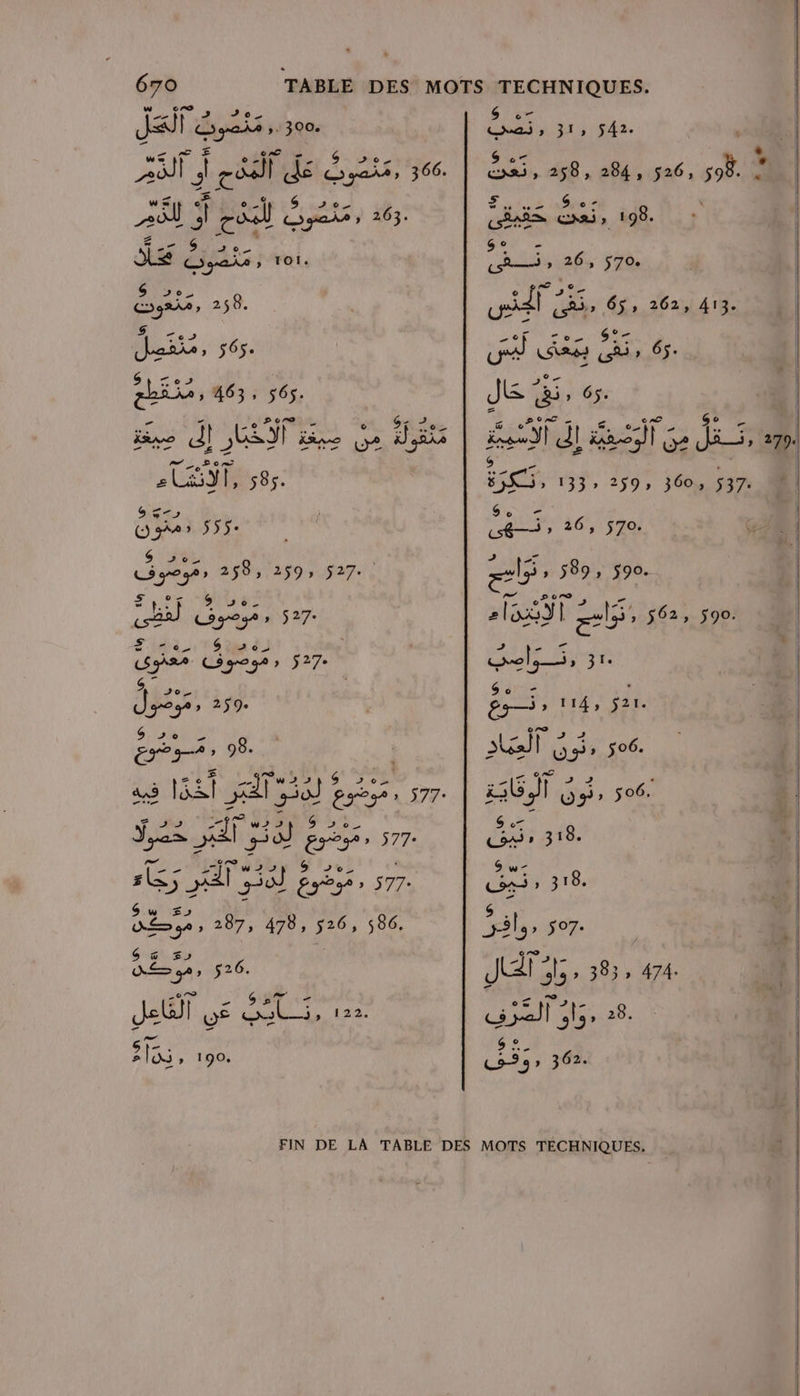 670 TABLE DES MOTS TECHNIQUES.
مَنْصُوبُ ٱلْمَحَلِّ, 300.
مَنْصُوبٌ عَلَى ٱلْمَدْحِ أَوِ ٱلذَّمِّ, 366.
مَنْصُوبٌ لِلْمَدْحِ أَوْ لِلذَّمِّ, 263.
مَنْصُوبٌ مَحَلًّا, 101.
مَنْعُوتٌ, 258.
مُنْفَصِلٌ, 565.
مُنْقَطِعٌ, 463, 565.
مَنْقُولَةٌ مِنْ صِيغَةِ ٱلْأَخْبَارِ إِلَى صِيغَةِ
ٱلْأَنْشَاءِ, 585.
مُنَوَّنٌ, 555.
مَوْصُوفٌ, 258, 259, 527.
مَوْصُوفٌ لَفْظِىٌّ, 527.
مَوْصُوفٌ مَعْنَوِىٌّ, 527.
مَوْصُولٌ, 259.
مَوْضُوعٌ, 98.
مَوْضُوعٌ لِدُنُوِّ ٱلْخَبَرِ أَخْذًا فِيهِ, 577.
مَوْضُوعٌ لِدُنُوِّ ٱلْخَبَرِ حُصُولًا, 577.
مَوْضُوعٌ لِدُنُوِّ ٱلْخَبَرِ رَجَاءً, 577.
مُوَكِّدٌ, 287, 478, 526, 586.
مُوَكَّدٌ, 526.
نَائِبٌ عَنِ ٱلْفَاعِلِ, 122.
نِدَاءٌ, 190.
نَصْبٌ, 31, 542.
نَعْتٌ, 258, 284, 526, 598.
نَعْتٌ حَقِيقِىٌّ, 198.
نَفْىٌ, 26, 570.
نَفْىُ ٱلْجِنْسِ, 65, 262, 413.
نَفْىٌ بِمَعْنَى لَيْسَ, 65.
نَفْىُ حَالٍ, 65.
نَقْلٌ مِنَ ٱلْوَصْفِيَّةِ إِلَى ٱلْأَسْمِيَّةِ, 279.
نَكِرَةٌ, 133, 259, 360, 537.
نَهْىٌ, 26, 570.
نَوَاسِخُ, 589, 590.
نَوَاسِخُ ٱلْأَبْتِدَاءِ, 562, 590.
نَوَاصِبُ, 31.
نَوْعٌ, 114, 521.
نُونُ ٱلْعِمَادِ, 506.
نُونُ ٱلْوِقَايَةِ, 506.
نَيْفٌ, 318.
نَيِّفٌ, 318.
وَافِرٌ, 507.
وَاوُ ٱلْحَالِ, 383, 474.
وَاوُ ٱلصَّرْفِ, 28.
وَقْفٌ, 362.
FIN DE LA TABLE DES MOTS TECHNIQUES.